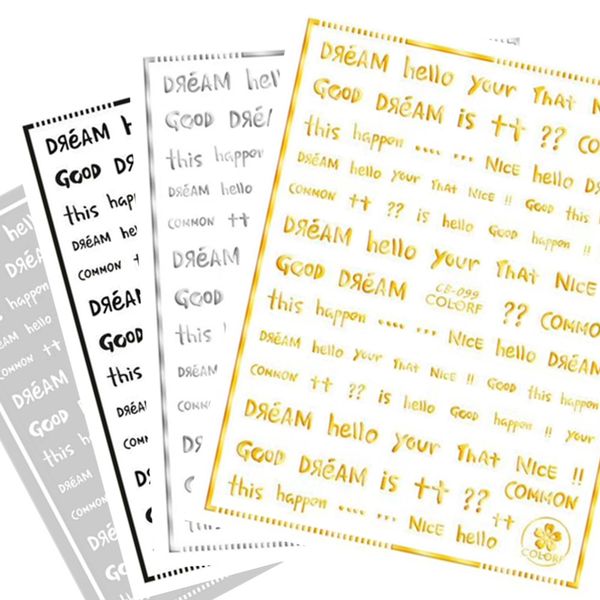 DREAM hello your That N
GOOD DREAM is tt ?? CO
this happen .... ... NICE hello DRE
DREAM hello your That NICE !! GOOD this h
COMMON tt ?? is hello GOOD happen !!
DREAM hello your That NICE
GOOD DREAM CB-099 COLORF ?? COMMON
this happen .... ... NICE hello DREAM
DREAM hello your That NICE !! GOOD this happen
COMMON tt ?? is hello GOOD happen !! your
DREAM hello your That NICE !!
GOOD DREAM is tt ?? COMMON
this happen .... ... NICE hello tt
COLORF
DREAM hel
GOOD DRE
this happen
DREAM hello
COMMON tt
DREAM
GOOD
this
DREAM
COMMON
DR
GO
this
DREAM h
GOOD D
this hap
DREAM he
COMMON
DREAM
GOOD
this
DREAM
COMMON
DREA
GOOD
this
hell
DREAM
happen
DREAM hello
COMMON tt
DREAM
GOOD
this
DREAM
COMMON
DREAM
GOOD
this